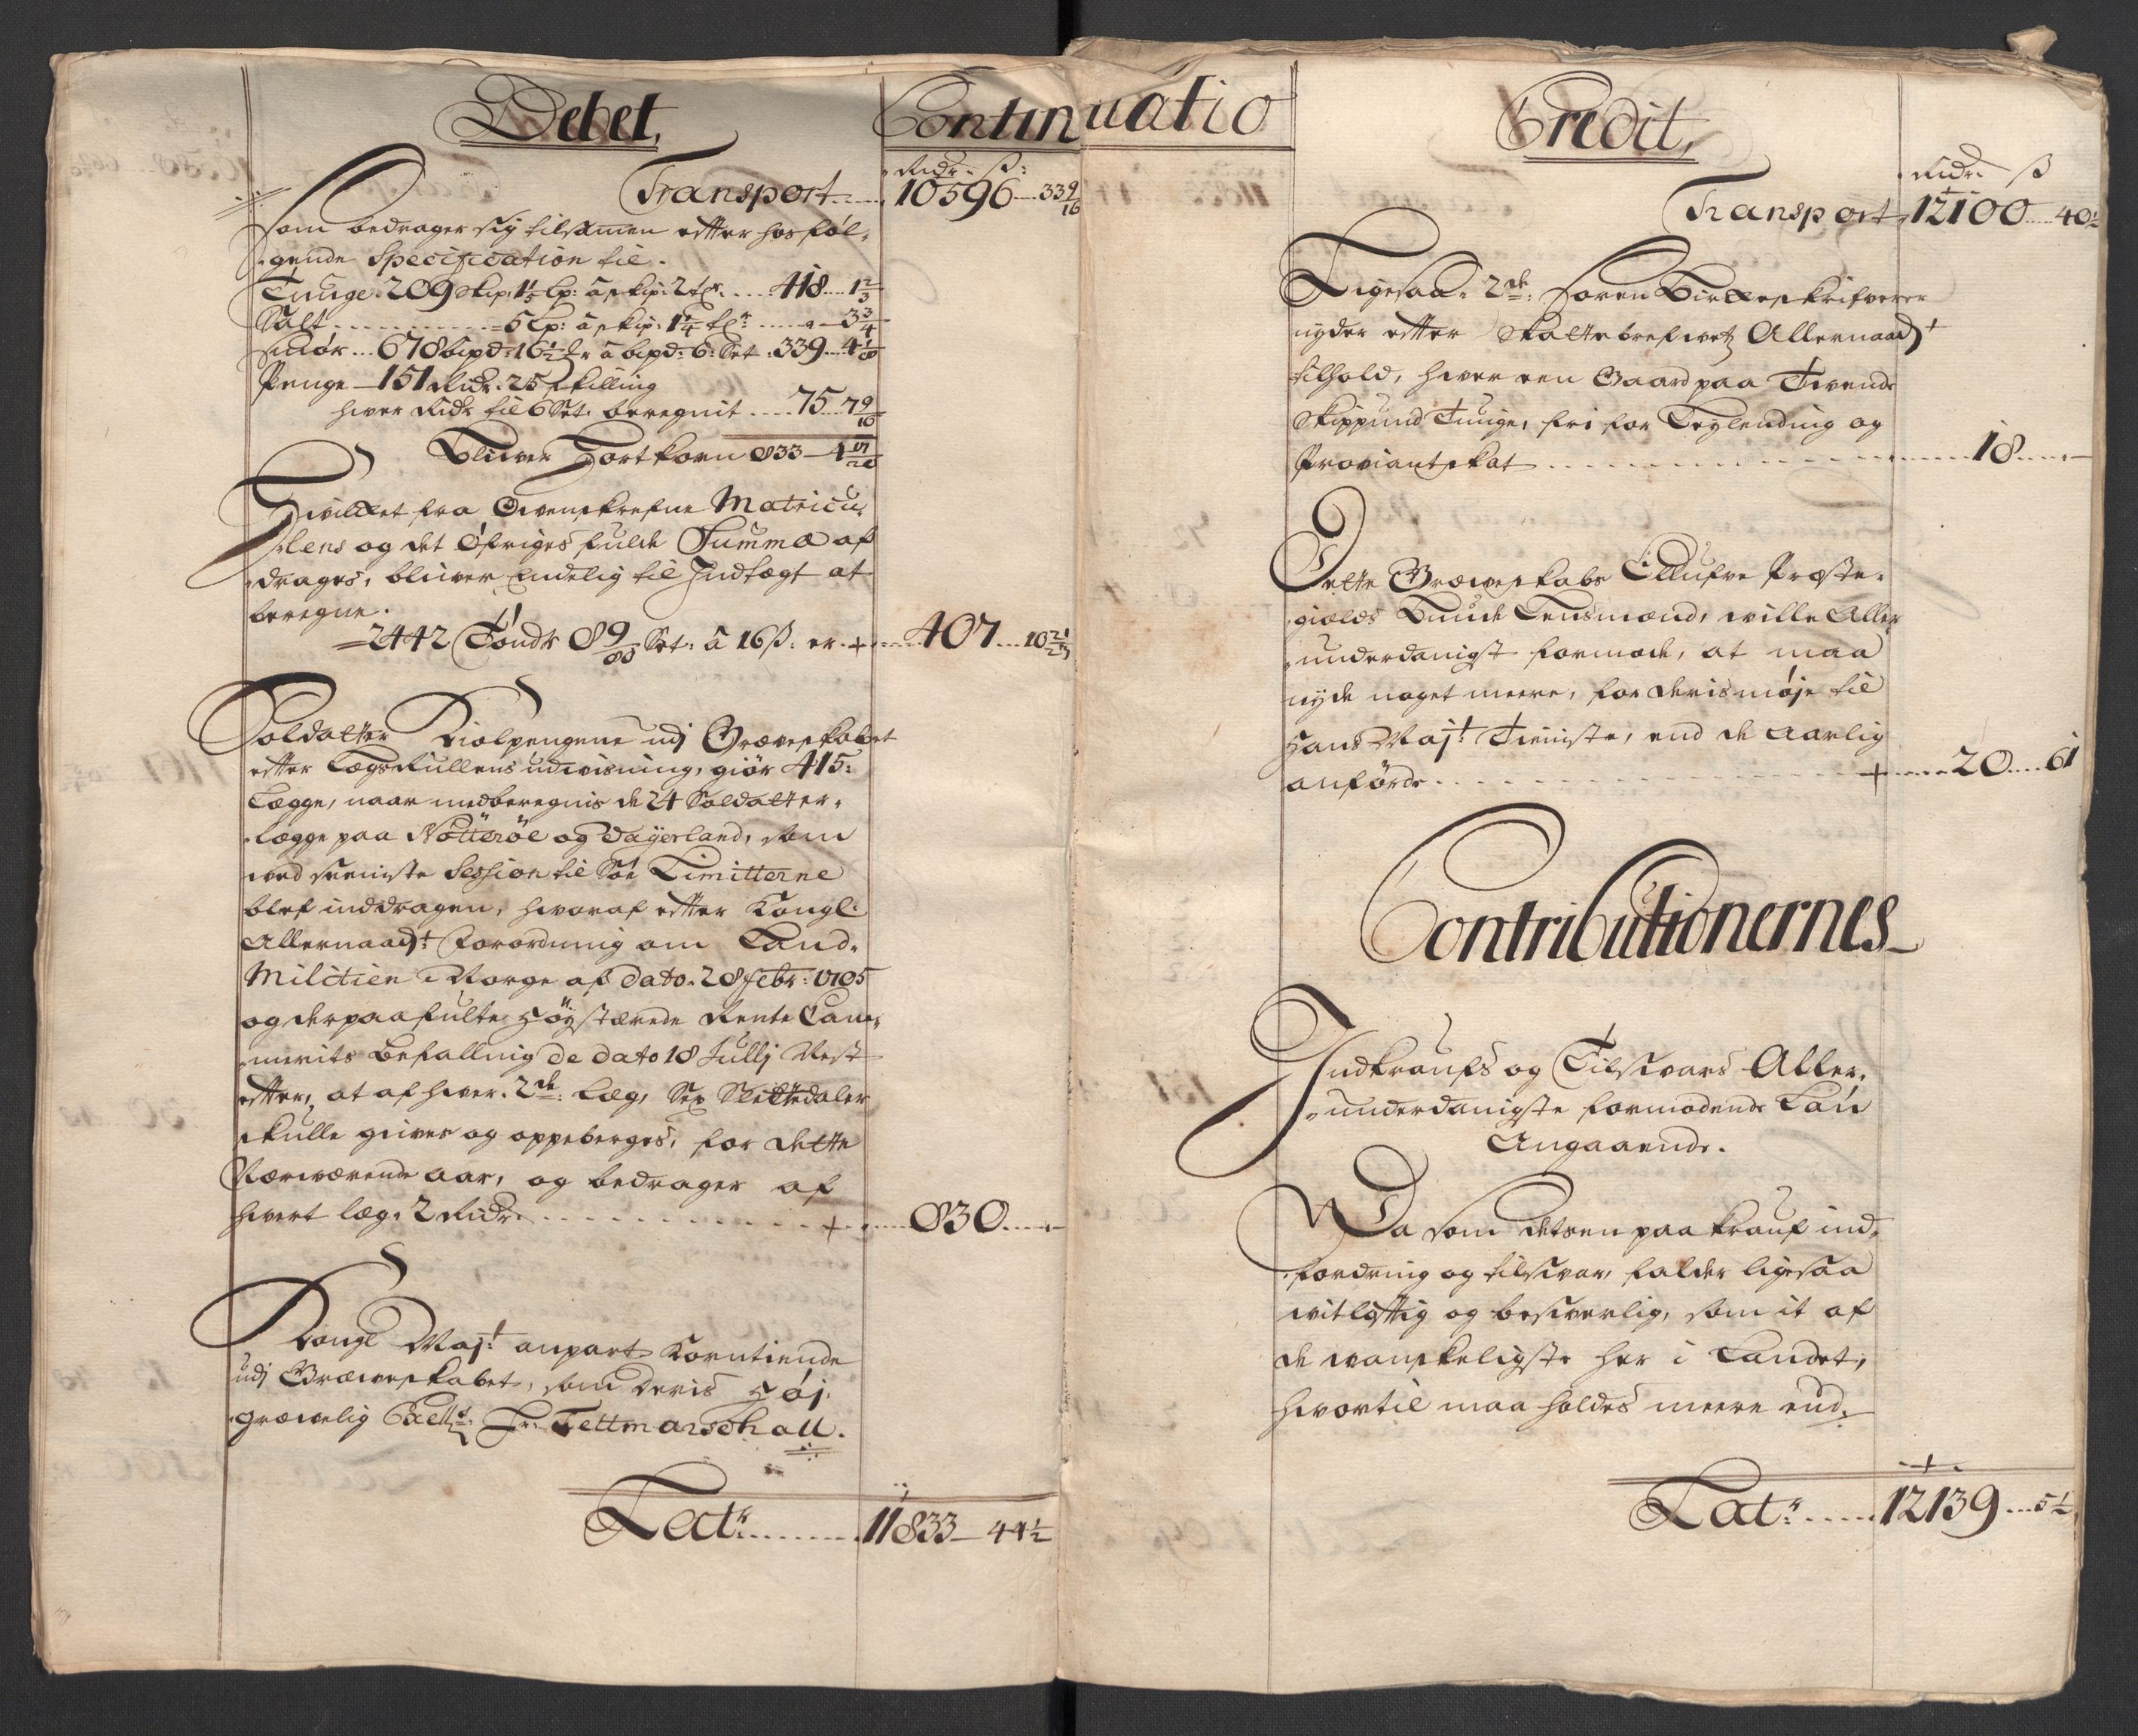 Debet,
Continuatio
Ridr. ß:
Transport 10596 33 9/16
som bedrager sig tilsammen efter hosføl-
gende Specification til.
Tunge. 209 skip: 1 1/5 Lp: à skip: 2 tdr. 418 1 2/3
Salt = 5 Lp: à skip: 1 1/4 3 3/4
Smør 678 bipd: 16 1/2 à bipd: 6 Set: 339 4 1/8
Penge 151 Ridr. 25 skilling
hver Ridr til 6 Set. beregnit 75 7 9/16
Blifver Hortkorn 833 4
Hvilket fra Ovenskrefne Matricu-
lens og det Øfriges fulde Summa af
drages, blifver Endelig til Indtægt at
beregne.
2442 Tönder 89/80 Set. à 16 ß: er 407 10
Soldatter Hiolpengene udj Græveskabet
efter Lægs Rullens udvisning, giör 415
Lægge, naar medberegnis de 24 Soldatter
lægge paa Nötteröe og Dayerland, som
ved seeniste Session til Söe Limitterne
blef inddragen, hvoraf efter Kongl:
Allernaadt: Forordning om Land-
Militien i Norge af dato 28 febr: 1705
og derpaa fulte Höystærede Rente Cam-
merits Befalling de dato 18 Julij Nest
efter, at af hver 2de: Læg, Sex Slettedaler
skulle gives og oppeberges, for dette
Nærværende aar, og bedrager af
hvert læg. 2 Ridr. 830
Kongl Maj:t anpart Korntiende
udj Græveskabet, som deris Höj-
grævelig Excell: Hr: Feltmarschall.
Latr. 11833 44 1/2
Credit,
Ridr. ß
Transport, 12100 40 1/2
Ligesaa 2de: Soren
nyder efter Skattebrefvetz Allernaad:t
tilhold, hver een Gaard paa Tvende
Skippund Tunge, fri for Leylending og
Proviantskat 18
Dette Græveskabs Ellufve Præste-
gields Bunde Lensmænd, ville Aller-
underdanigst formode, at maa
nyde noget meere, for deris möje til
Hans Maj:t Tieniste, end de Aarlig
anförde 20 61
Contributionernes
Indkraufs og Tilsvars Aller-
underdanigste formodende Lön
Angaaende.
Da som detsen paa krauf ind-
fordring og tilsvar, falder ligesaa
vitlöftig og besverlig, som it af
de vanskeligste her i Landet,
hvortil maa holdes meere end
Latr. 12139 5 1/2